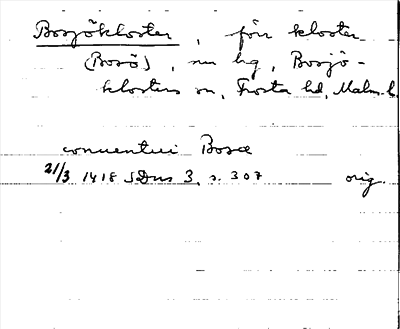 Bosjökloster, förr kloster
(Bosö), nu hg, Bosjö-
klosters sn, Frosta hd, Malm. l.
conuentui Bosœ
21/3 1418 SDns 3, s. 307 orig.